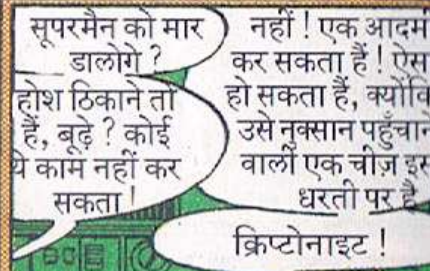 सूपरमैन को मार
डालोगे ?
होश ठिकाने तो
हैं, बूढ़े ? कोई
ये काम नहीं कर
सकता !
नहीं ! एक आदमी
कर सकता हैं ! ऐसा
हो सकता हैं, क्योंकि
उसे नुक्सान पहुँचाने
वाली एक चीज़ इस
धरती पर है
क्रिप्टोनाइट !